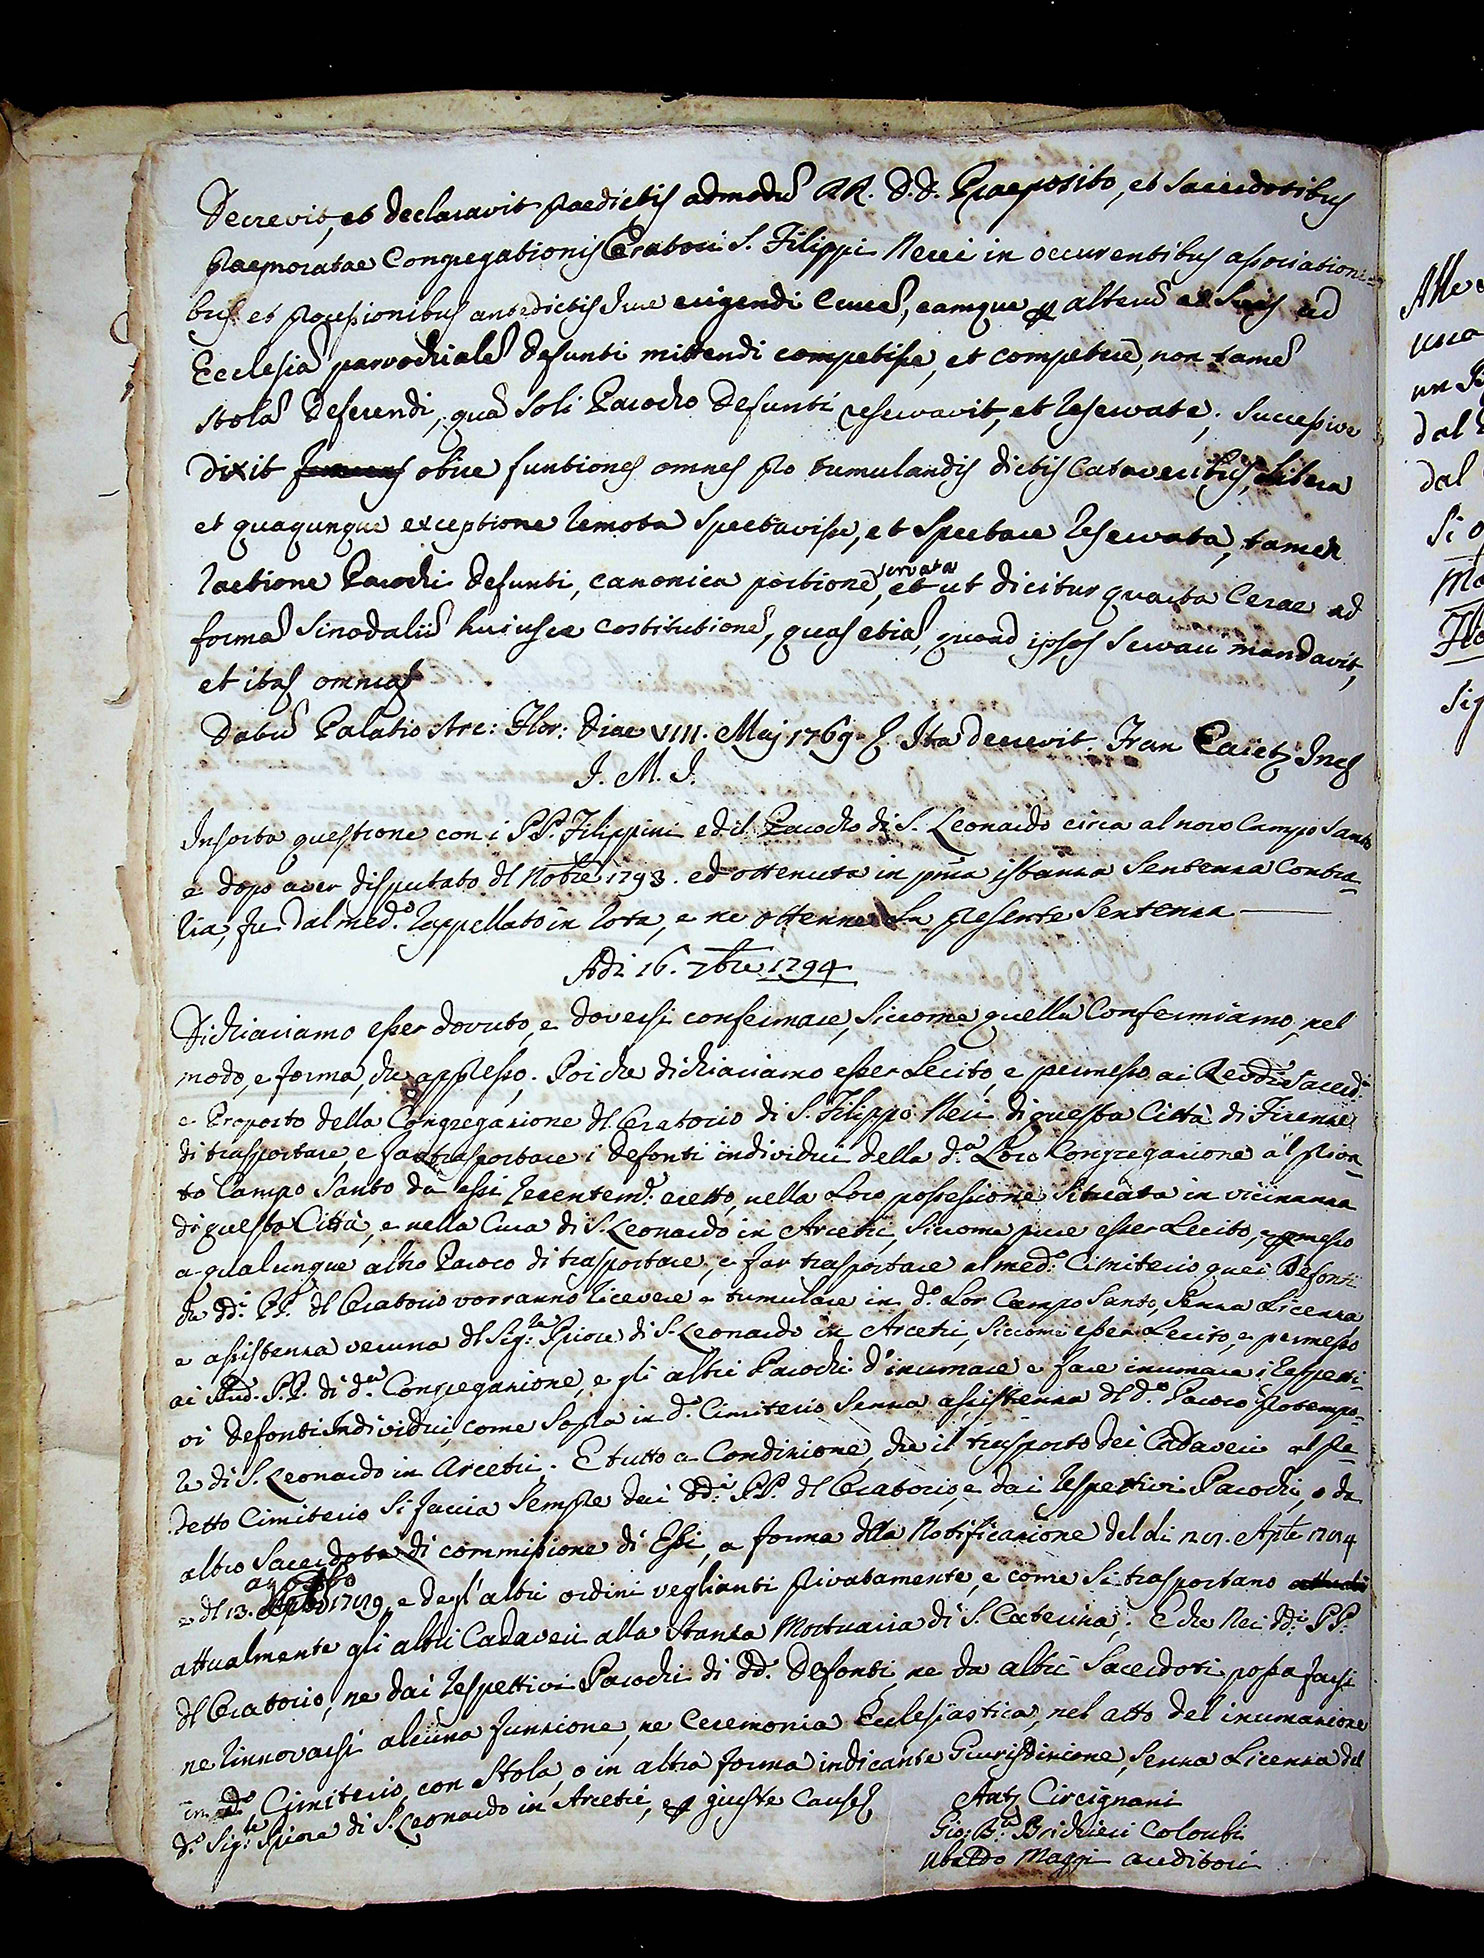 Decrevit, et declaravit praedictis admodu RR. D.D. Praeposito, et Sacerdotibus
praemoratae Congregationis Oratori S. Filippi Nerei in occurentibus associationi=
bus et processionibus antedictis Jure erigendi Cruce, eamque altera ad
Ecclesia parrochiale Defunti mittendi competisse, et competere, non tame
stola Deferendi, qua soli Parocho Defunti reservavit, et reservate; Successive
dixit obire funtiones omnes pro tumulandis dictis Cataveribus, libera
et quaqunque exceptione remota Spectavisse, et Spectare reservata, tamen
ractione Parochi Defunti, canonica portione, servata et ut dicitur quarta Cerae ad
forma Sinodaliu huiusce Costitutione, quas etia, quoad ipsos Servari mandavit,
et ita omni
Datu Palatio Arc: Flor: Diae VIII. Maj 1769. Ita decrevit. Fran
J. M. J.
Insorta questione con i PP. Filippini ed il Parocho di S. Leonardo circa al novo Campo Santo
e dopo aver disputato dl Nobre 1793. ed ottenuta in pma istanza Sentenza Contra-
ria, fu dal med.o rappellato in rota, e ne ottenne la presente Sentenza
Adi 16. 7bre 1794
Dichiariamo esser dovuto, e doversi confermare, siccome quella Confermiamo, nel
modo, e forma, che appresso. Poi che dichiariamo esser Lecito, e permesso ai Revdi Sacerd.i
e Proposto della Congregazione dl Oratorio di S. Filippo Neri di questa Città di Firenze
di trasportare, e far trasportare i defonti individui della d.a Loro Congregazione al pron-
to Campo Santo da essi recentem.e eretto, nella Loro possessione situata in vicinanza
di questa Città, e nella Cura di S. Leonardo in Arcetri, siccome pure esser Lecito, e pmesso
a qualunque altro Paroco di trasportare, e far trasportare al med.o Cimiterio quei Defonti
che dd.i PP. dl Oratorio vorranno ricevere e tumulare in d.o Lor Campo Santo, Senza Licenza
e assistenza veruna dl Sig.re Priore di S. Leonardo in Arcetri, siccome esser Lecito, e permesso
ai Rnd. P.P. di d.a Congregazione, e gli altri Parochi d'inumare e fare inumare i respetti-
vi defonti Individui, come Sopra in d.o Cimiterio Senza assistenza dl d.o Paroco protempo-
re di S. Leonardo in Arcetri. E tutto a Condizione, che il trasporto dei Cadaveri al pre-
detto Cimiterio Si faccia Sempre dai dd.i PP. dl Oratorio, e dai respettivi Parochi, o da
altro Sacerdote di commissione di Essi, a forma dlla Notificazione del di
e dl 13. agosto e degl'altri ordini veglianti privatamente, e come Si trasportano
attualmente gli altri Cadaveri alla Stanza Mortuaria di S. Caterina. E che Nei dd.i PP.
dl Oratorio, ne dai respettivi Parochi di dd.i Defonti, ne da altri Sacerdoti possa farsi
ne rinnovarsi alcuna funzione, ne Ceremonia Ecclesiastica, nel atto del inumazione
in do. Cimiterio, con Stola, o in altra forma indicante Giurisdizione, Senza Licenza del
d.o Sig.re Priore di S. Leonardo in Arcetri, e p giuste Cause
Ant.o Circignani
Gio: B.a Brichieri Colombi
Ubaldo Maggi auditori